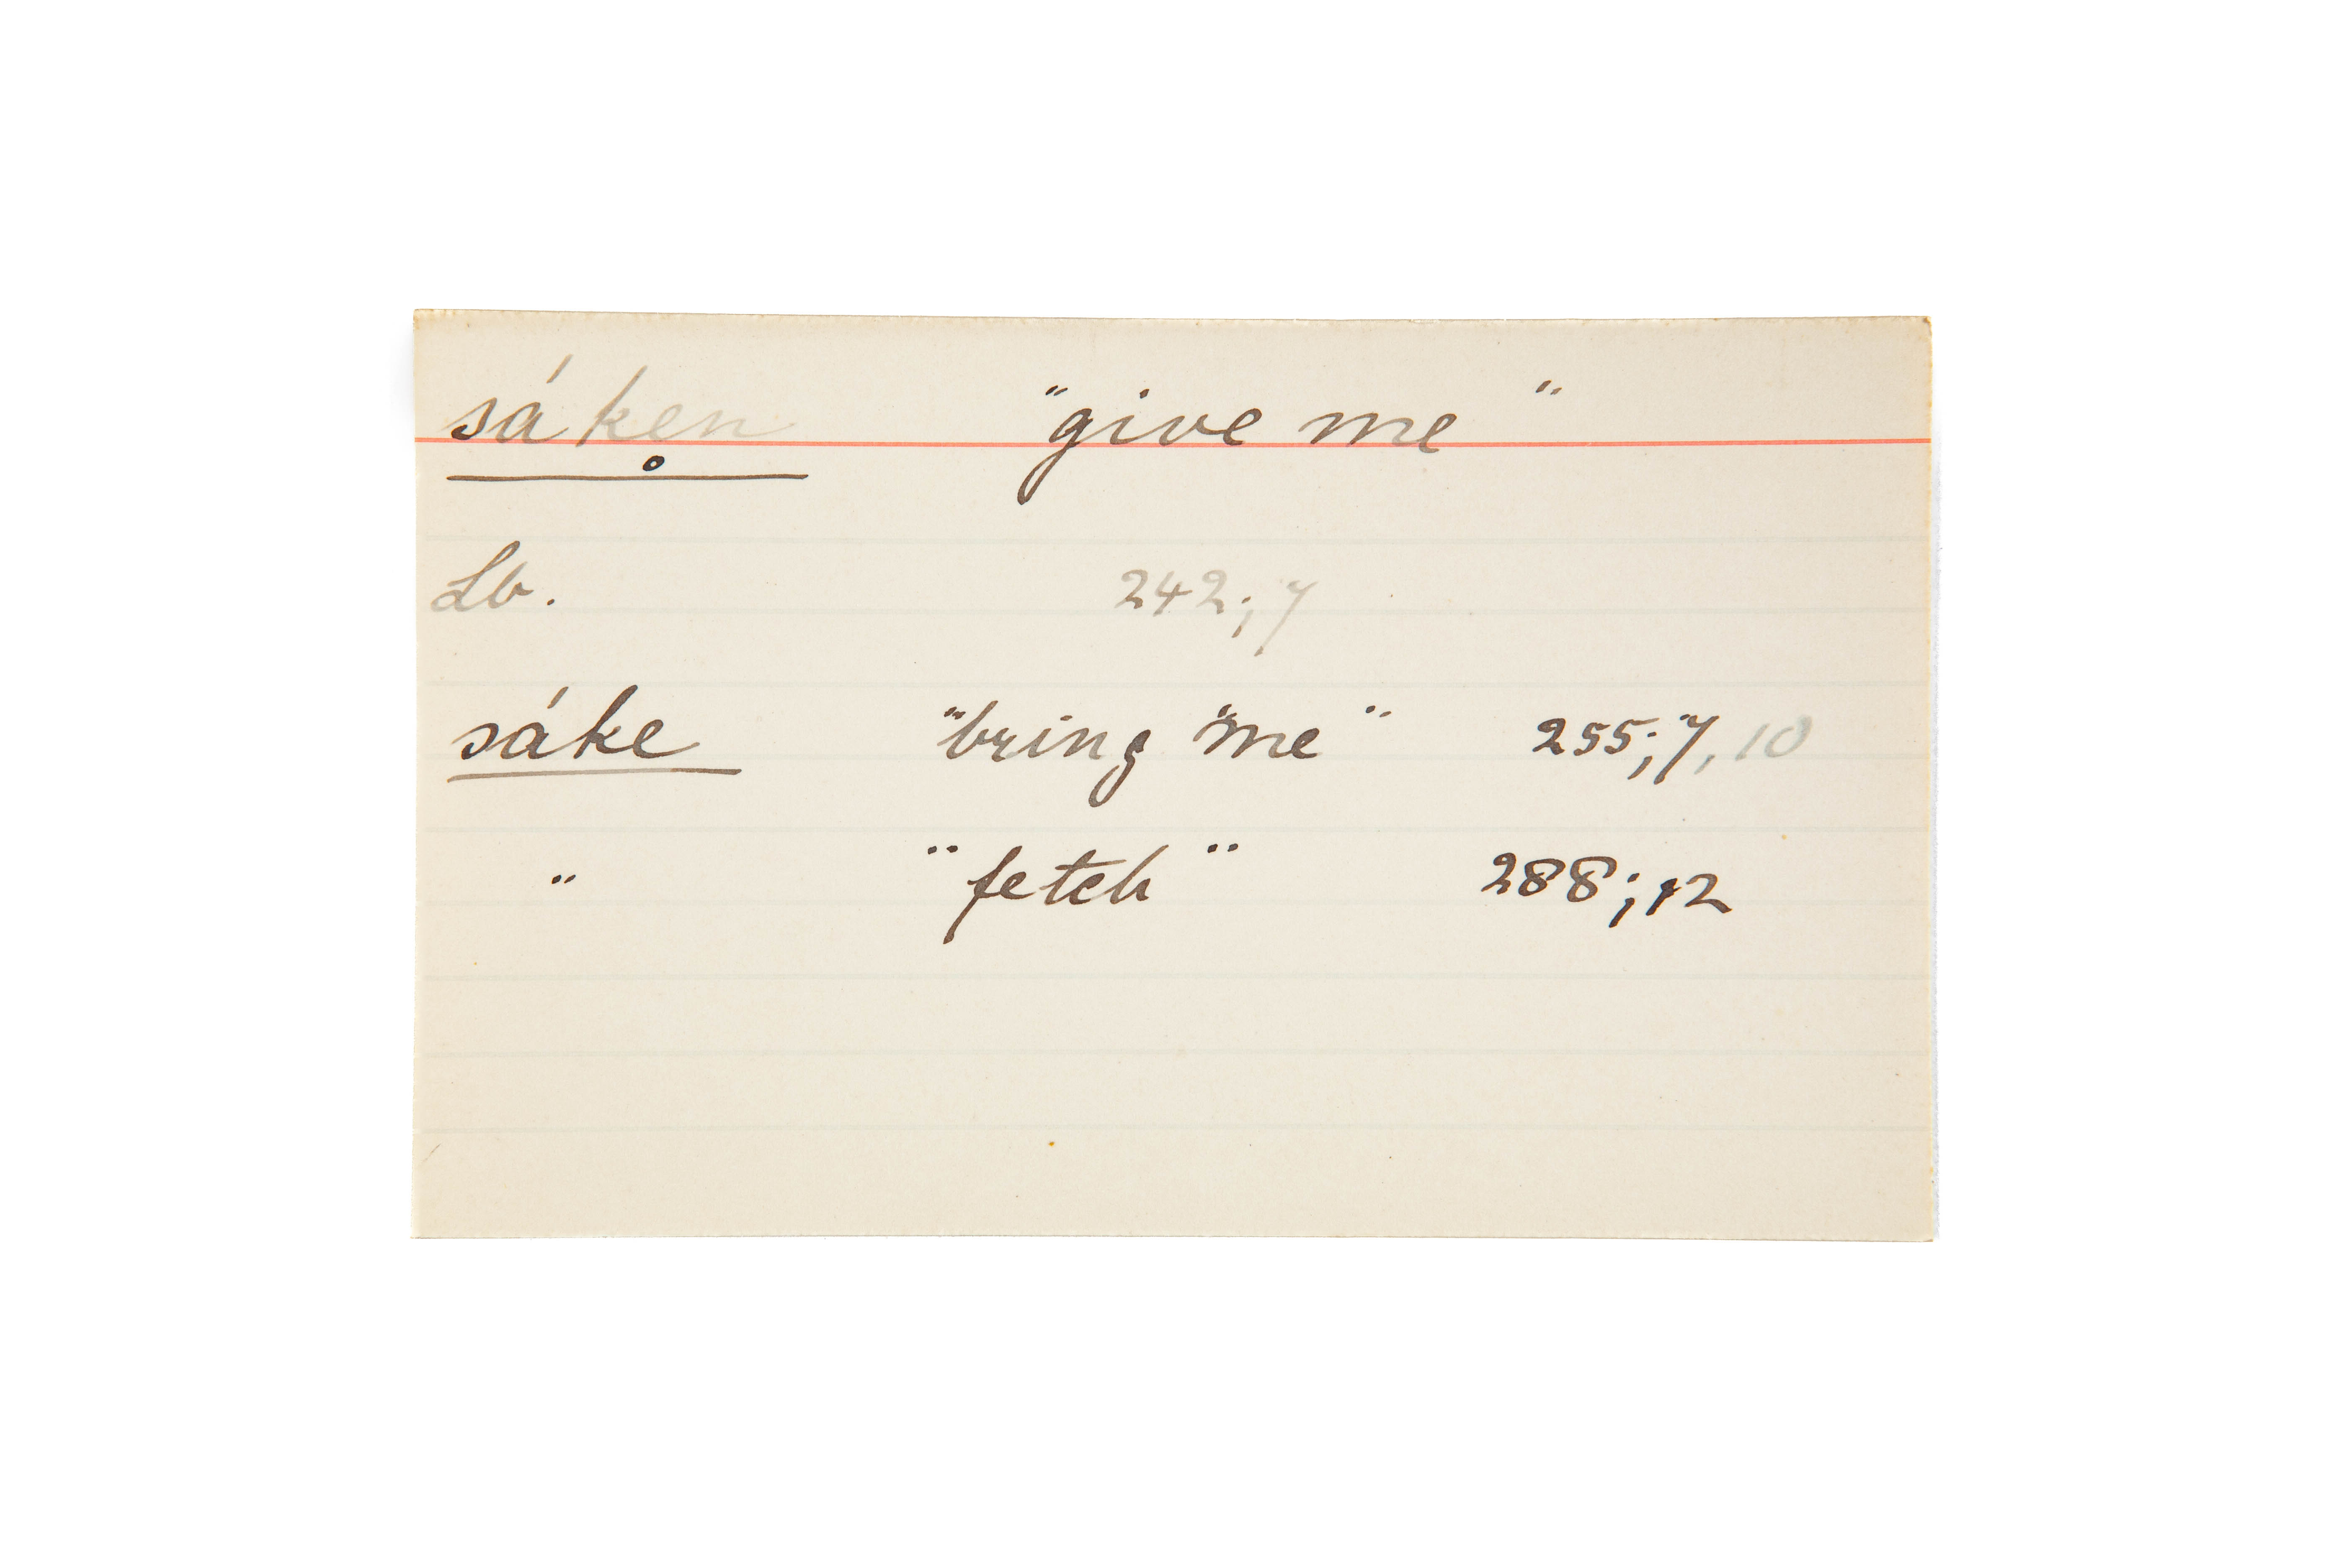 sáke̥n "give me"
Lb. 242; 7
sáke "bring "me" 255; 7, 10
" "fetch" 288; 12